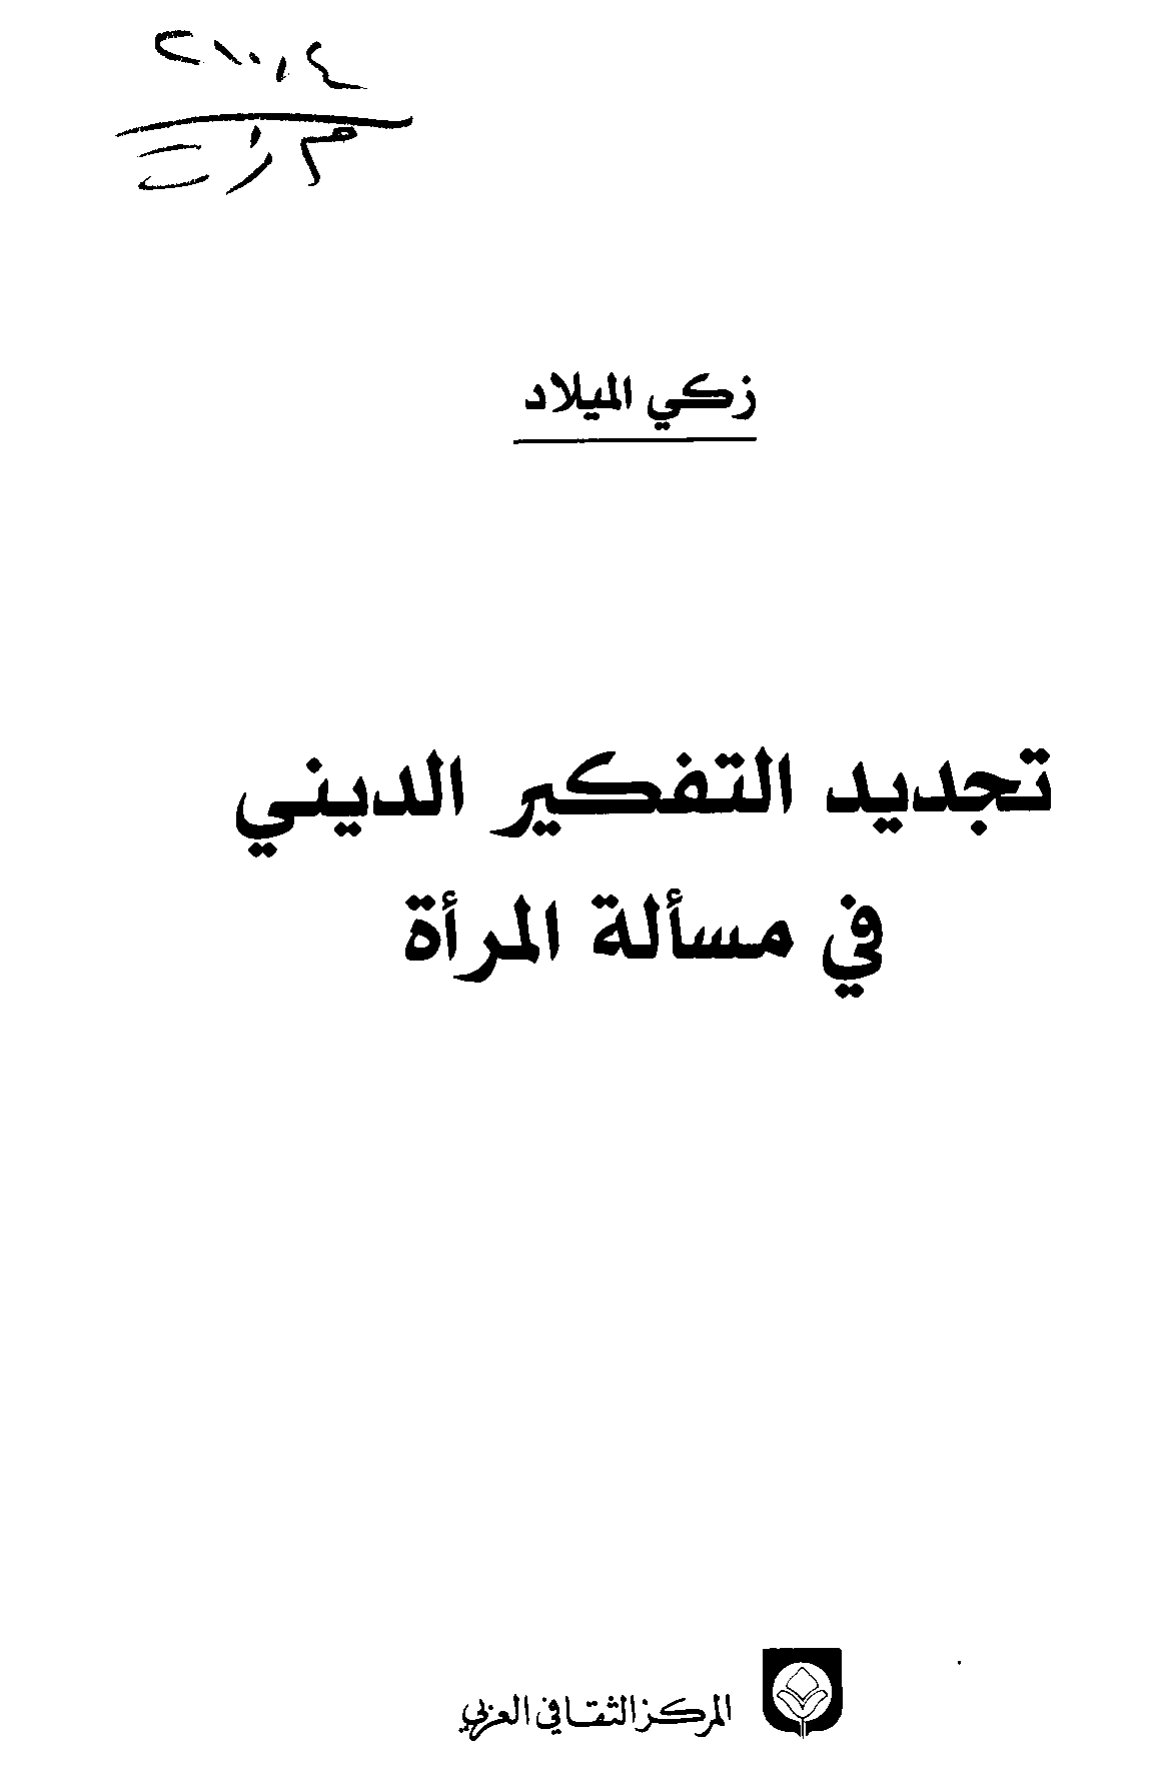 زكي الميلاد
تجديد التفكير الديني
في مسألة المرأة
المركز الثقافي العربي